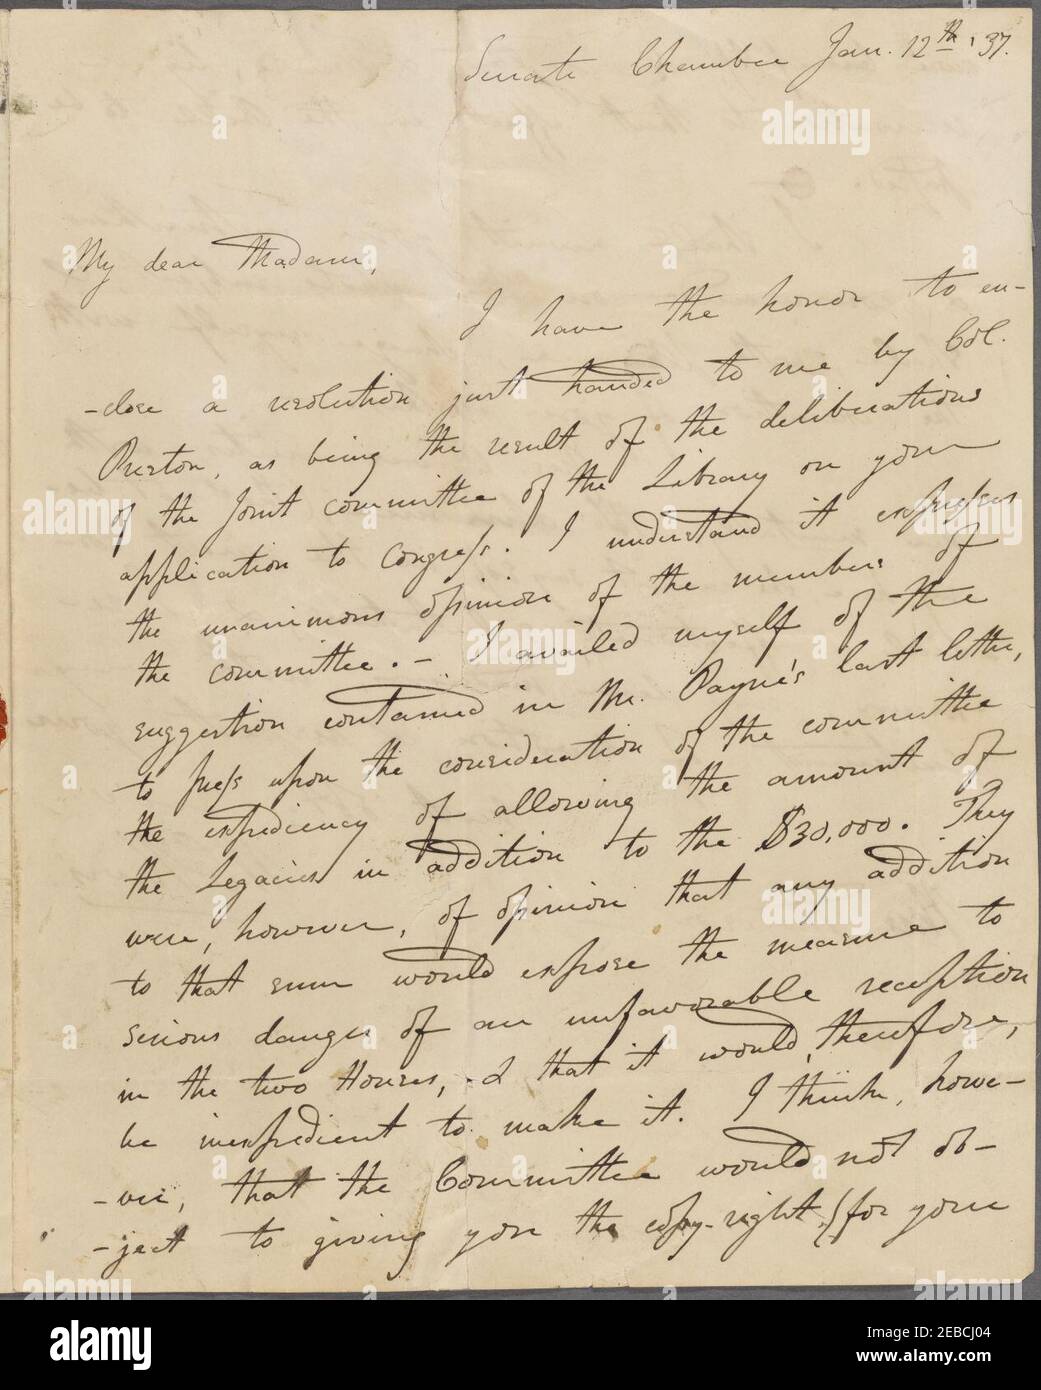 Senate Chamber Jan. 12th. 37.
My dear Madam,
I have the honor to en-
-close a resolution just handed to me by Col.
Preston, as being the result of the deliberations
of the Joint committee of the Library on your
application to Congress. I understand it expresses
the unanimous opinion of the members of
the committee. - I availed myself of the
suggestion contained in Mr. Payne's last letter,
to press upon the consideration of the committee
the expediency of allowing the amount of
the Legacies in addition to the $30,000. They
were, however, of opinion that any addition
to that sum would expose the measure to
serious danger of an unfavorable reception
in the two Houses, & that it would, therefore,
be inexpedient to make it. I think, howe-
-ver, that the Committee would not ob-
-ject to giving you the copy-right (for your
alamy
Image ID: 2EBCJ04
www.alamy.com